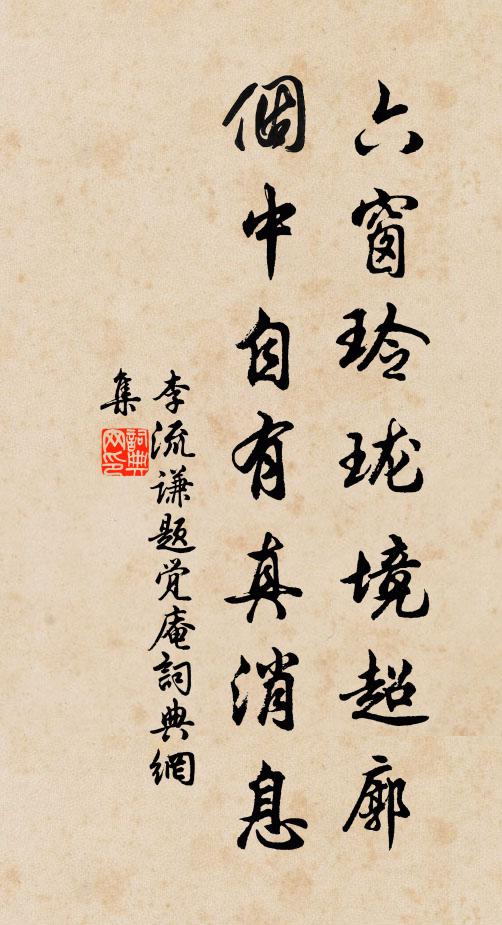 六窗玲珑境超廓
個中自有真消息
李流谦题觉庵詞典網
集
詞典网印